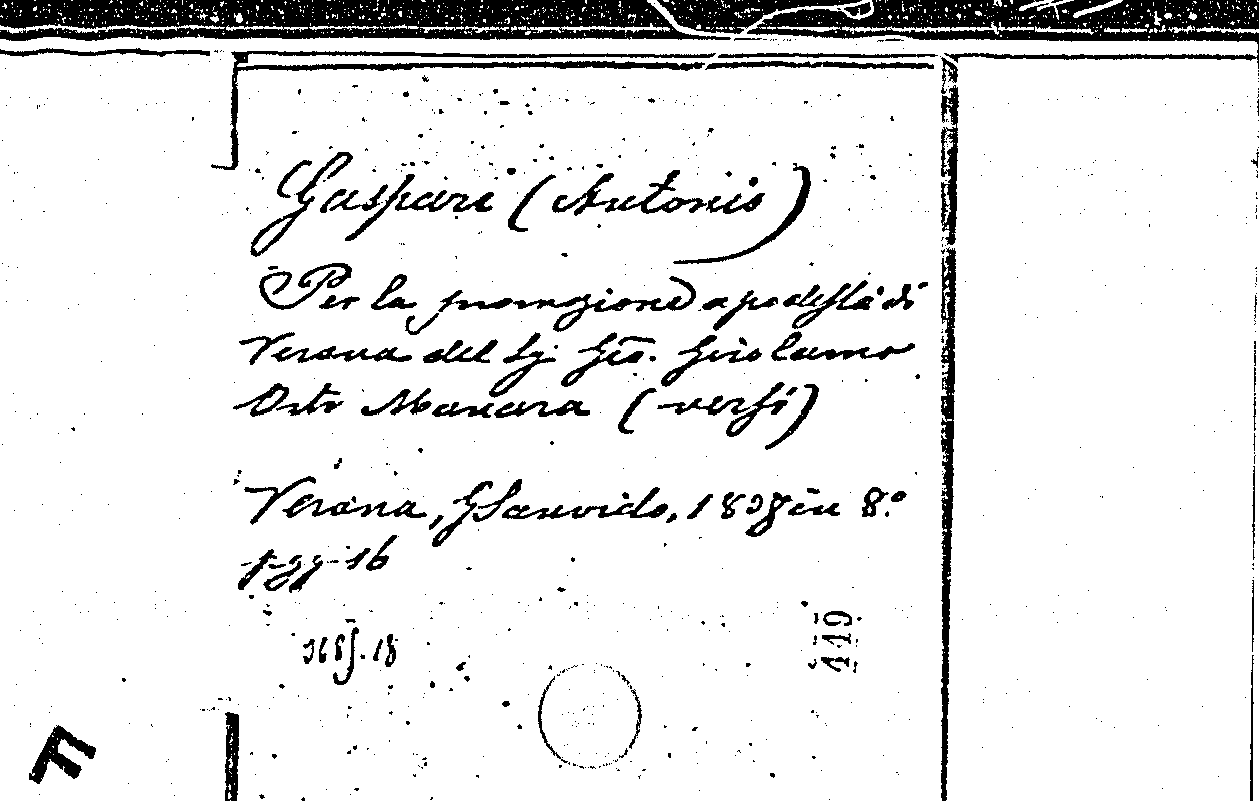 Gaspari (Antonio)
Per la promozione a podestà di
Verona del Sig. Gio. Girolamo
Orti Manara (versi)
Verona, G Sanvido, 1838 in 8.º
pagg. 16
168J.18
449
F